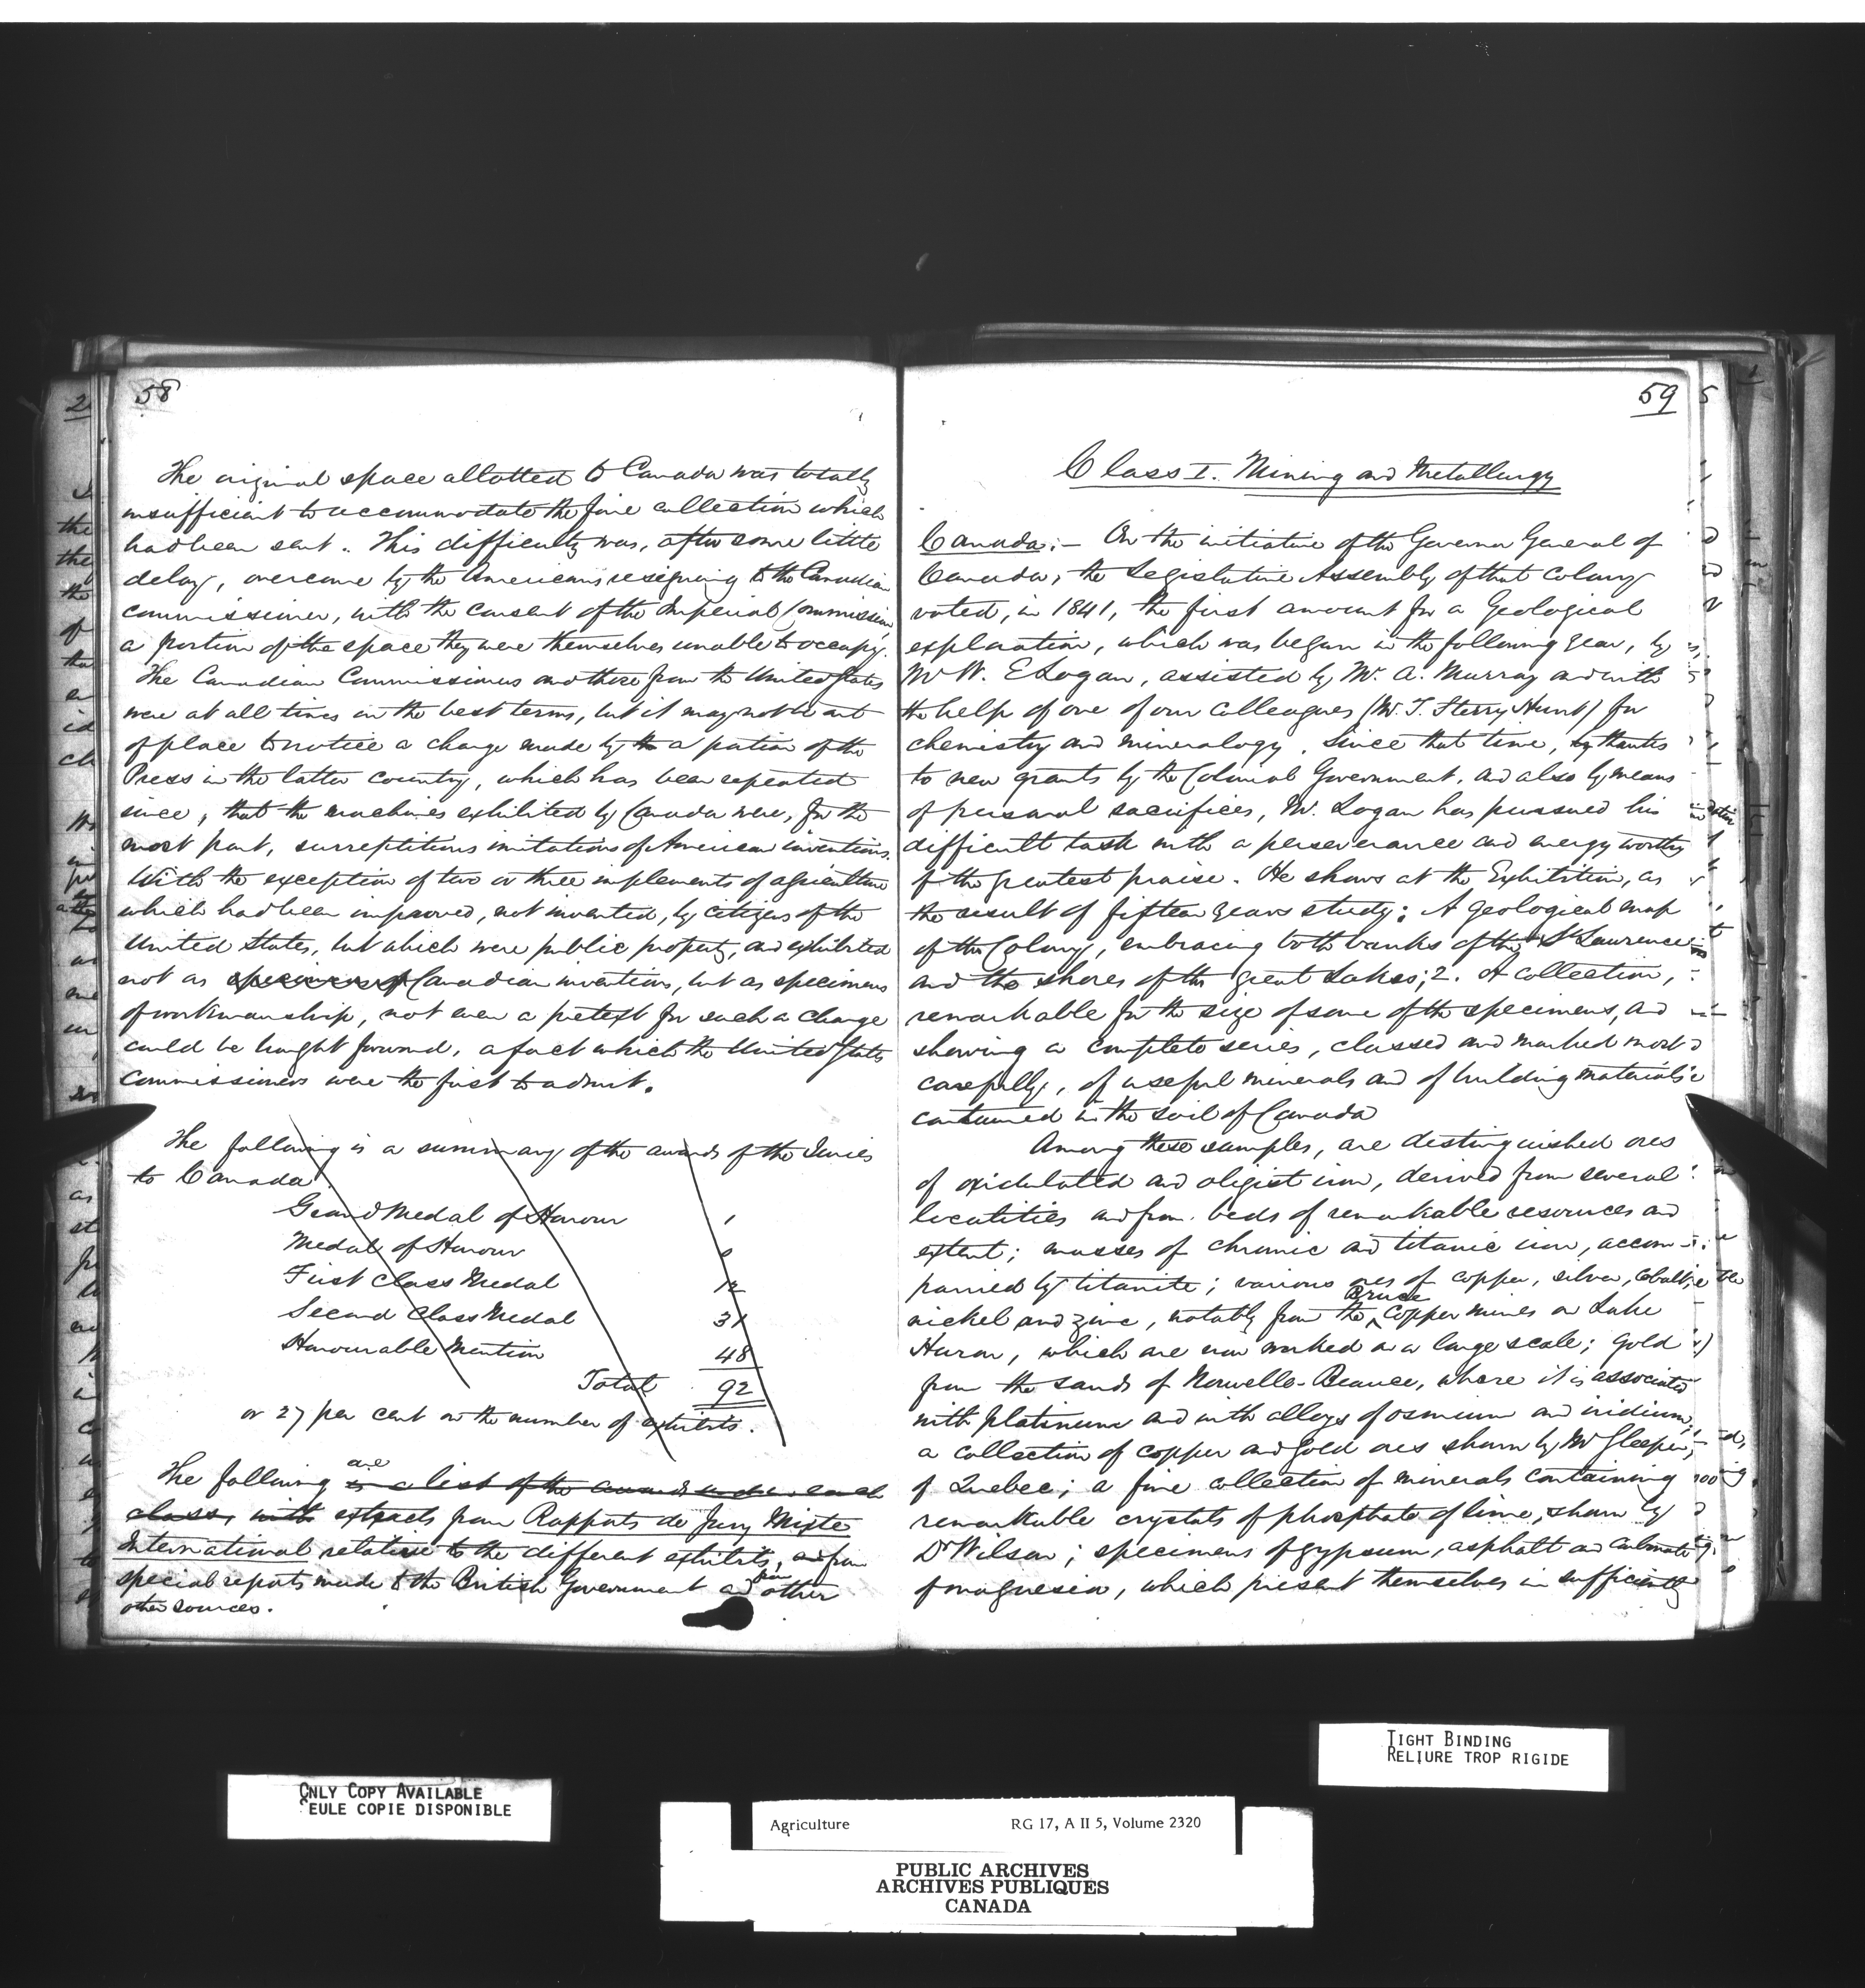 58
The original space allotted to Canada was totally
insufficient to accommodate the fine collection which
had been sent. This difficulty was, after some little
delay, overcome by the Americans resigning to the Canadian
commissioner, with the consent of the Imperial Commission,
a portion of the space they were themselves unable to occupy.
The Canadian Commissioners and those from the United States
were at all times on the best terms, but it may not be out
of place to notice a charge made by the a portion of the
Press in the latter country, which has been repeated
since, that the machines exhibited by Canada were, for the
most part, surreptitious imitations of American inventions.
With the exception of two or three implements of agriculture
which had been improved, not invented, by citizens of the
United States, but which were public property, and exhibited
not as specimens of Canadian invention, but as specimens
of workmanship, not even a pretext for such a charge
could be brought forward, a fact which the United States
Commissioners were the first to admit.
The following is a summary of the awards of the Juries
to Canada.
Grand Medal of Honour 1
Medal of Honour
First Class Medal 12
Second Class Medal 31
Honourable Mention 48
Total 92
or 27 per cent on the number of exhibits.
The following are is a list of the awards under each
class, with extracts from Rapports de Jury Mixte
International relative to the different exhibits, and from
special reports made to the British Government and from other
other sources.
59
Class I. Mining and Metallurgy
Canada:— On the initiative of the Governor General of
Canada, the Legislative Assembly of that Colony
voted, in 1841, the first amount for a Geological
exploration, which was begun in the following year, by
Mr W. E Logan, assisted by Mr. A. Murray and with
the help of one of our Colleagues (Mr. T. Sterry Hunt) for
chemistry and mineralogy. Since that time, by thanks
to new grants by the Colonial Government, and also by means
of personal sacrifices, Mr. Logan has pursued his
difficult task with a perseverance and energy worthy
of the greatest praise. He shows at the Exhibition, as
the result of fifteen years study: A geological map
of the Colony, embracing both banks of the St Lawrence
and the shores of the great Lakes; 2. A collection,
remarkable for the size of some of the specimens, and
showing a complete series, classed and marked most
carefully, of useful minerals and of building materials
contained in the soil of Canada
Among these samples, are distinguished ores
of oxidulated and oligist iron, derived from several
localities and from beds of remarkable resources and
extent; masses of chromic and titanic iron, accom-
panied by titanite; various ores of copper, silver, cobalt,
nickel and zinc, notably from the Bruce Copper mines on Lake
Huron, which are now worked on a large scale; gold
from the sands of Nouvelle-Beauce, where it is associated
with platinum and with alloys of osmium and iridium;
a collection of copper and gold ores shown by Mr Sleeper,
of Quebec; a fine collection of minerals containing
remarkable crystals of phosphate of lime, shown by
Dr Wilson; specimens of gypsum, asphalt and carbonate
of magnesia, which present themselves in sufficiently
TIGHT BINDING
RELIURE TROP RIGIDE
ONLY COPY AVAILABLE
SEULE COPIE DISPONIBLE
Agriculture RG 17, A II 5, Volume 2320
PUBLIC ARCHIVES
ARCHIVES PUBLIQUES
CANADA